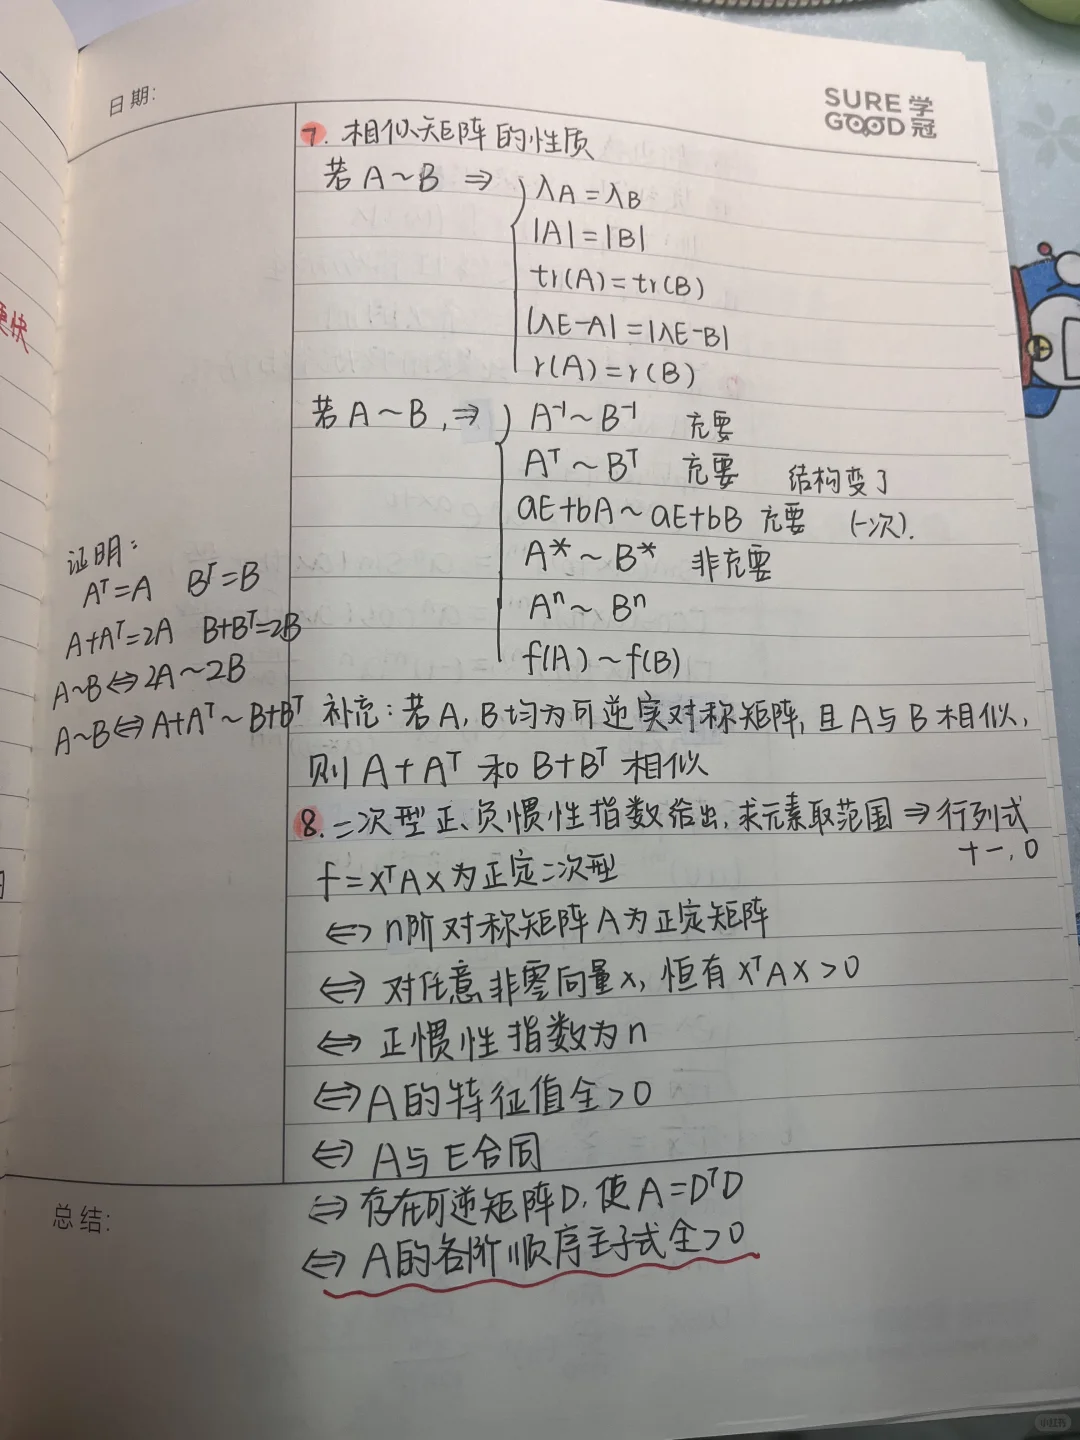 日期:
SURE 学
GOOD 冠
7. 相似矩阵的性质
若 A~B ⇒
λA = λB
|A| = |B|
tr(A) = tr(B)
|λE-A| = |λE-B|
r(A) = r(B)
若 A~B, ⇒
A⁻¹ ~ B⁻¹ 充要
Aᵀ ~ Bᵀ 充要 结构变了
aE+bA ~ aE+bB 充要 (一次).
A* ~ B* 非充要
Aⁿ ~ Bⁿ
f(A) ~ f(B)
证明:
Aᵀ=A Bᵀ=B
A+Aᵀ=2A B+Bᵀ=2B
A~B ⇔ 2A~2B
A~B ⇔ A+Aᵀ ~ B+Bᵀ
补充: 若 A, B 均为可逆实对称矩阵, 且 A 与 B 相似,
则 A+Aᵀ 和 B+Bᵀ 相似
8. 二次型正、负惯性指数给出, 求元素取范围 ⇒ 行列式
+ -, 0
f = xᵀAx 为正定二次型
⇔ n阶对称矩阵 A 为正定矩阵
⇔ 对任意非零向量 x, 恒有 xᵀAx > 0
⇔ 正惯性指数为 n
⇔ A 的特征值全 > 0
⇔ A 与 E 合同
⇔ 存在可逆矩阵 D, 使 A = DᵀD
⇔ A 的各阶顺序主子式全 > 0
总结:
小红书